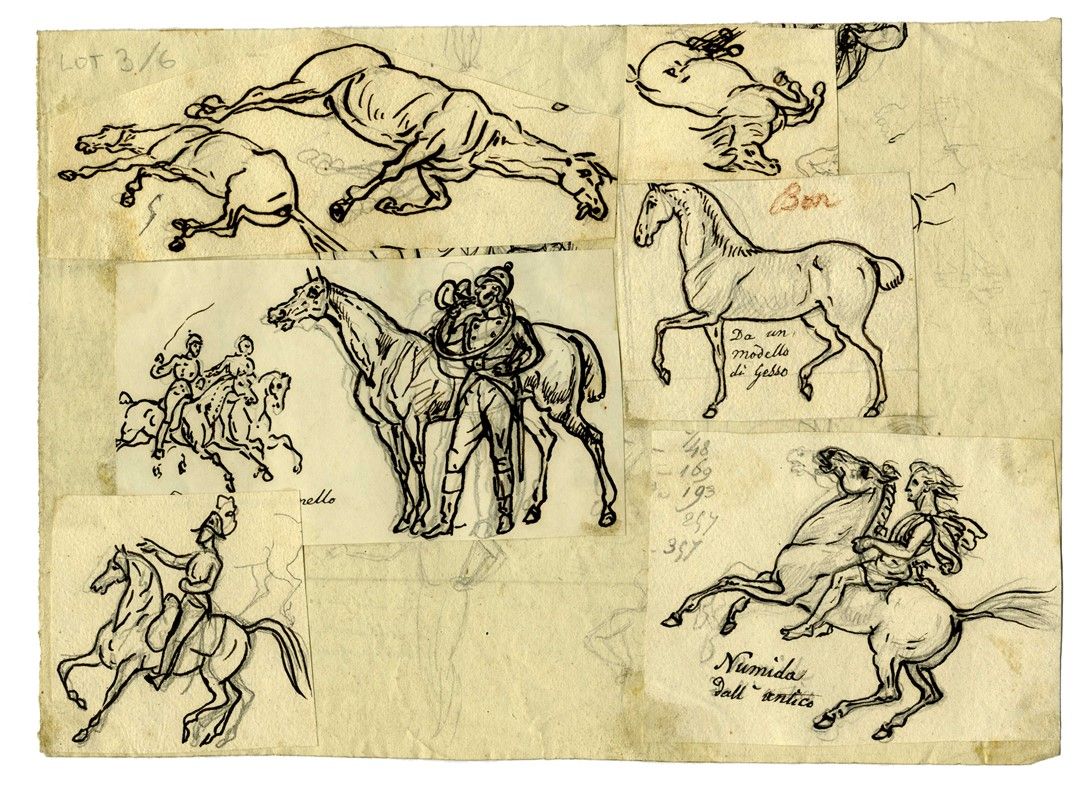 LOT 3/6
Bon
Da un
modello
di Gesso
nello
748
- 169
193
257
- 357
Numida
dall' antico